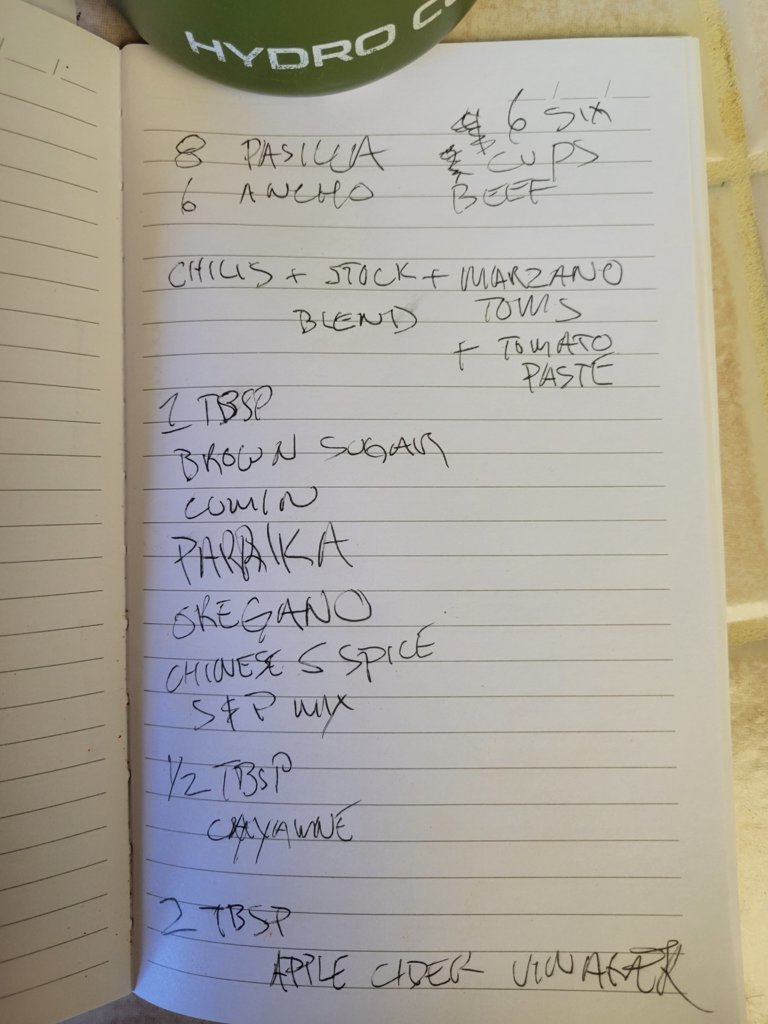 HYDRO C
6 SIX
8 PASILLA CUPS
6 ANCHO BEEF
CHILIS + STOCK + MARZANO
BLEND TOMS
+ TOMATO
PASTE
1 TBSP
BROWN SUGAR
CUMIN
PAPRIKA
OREGANO
CHINESE 5 SPICE
S&P MIX
1/2 TBSP
CAYAWNE
2 TBSP
APPLE CIDER VINAGER